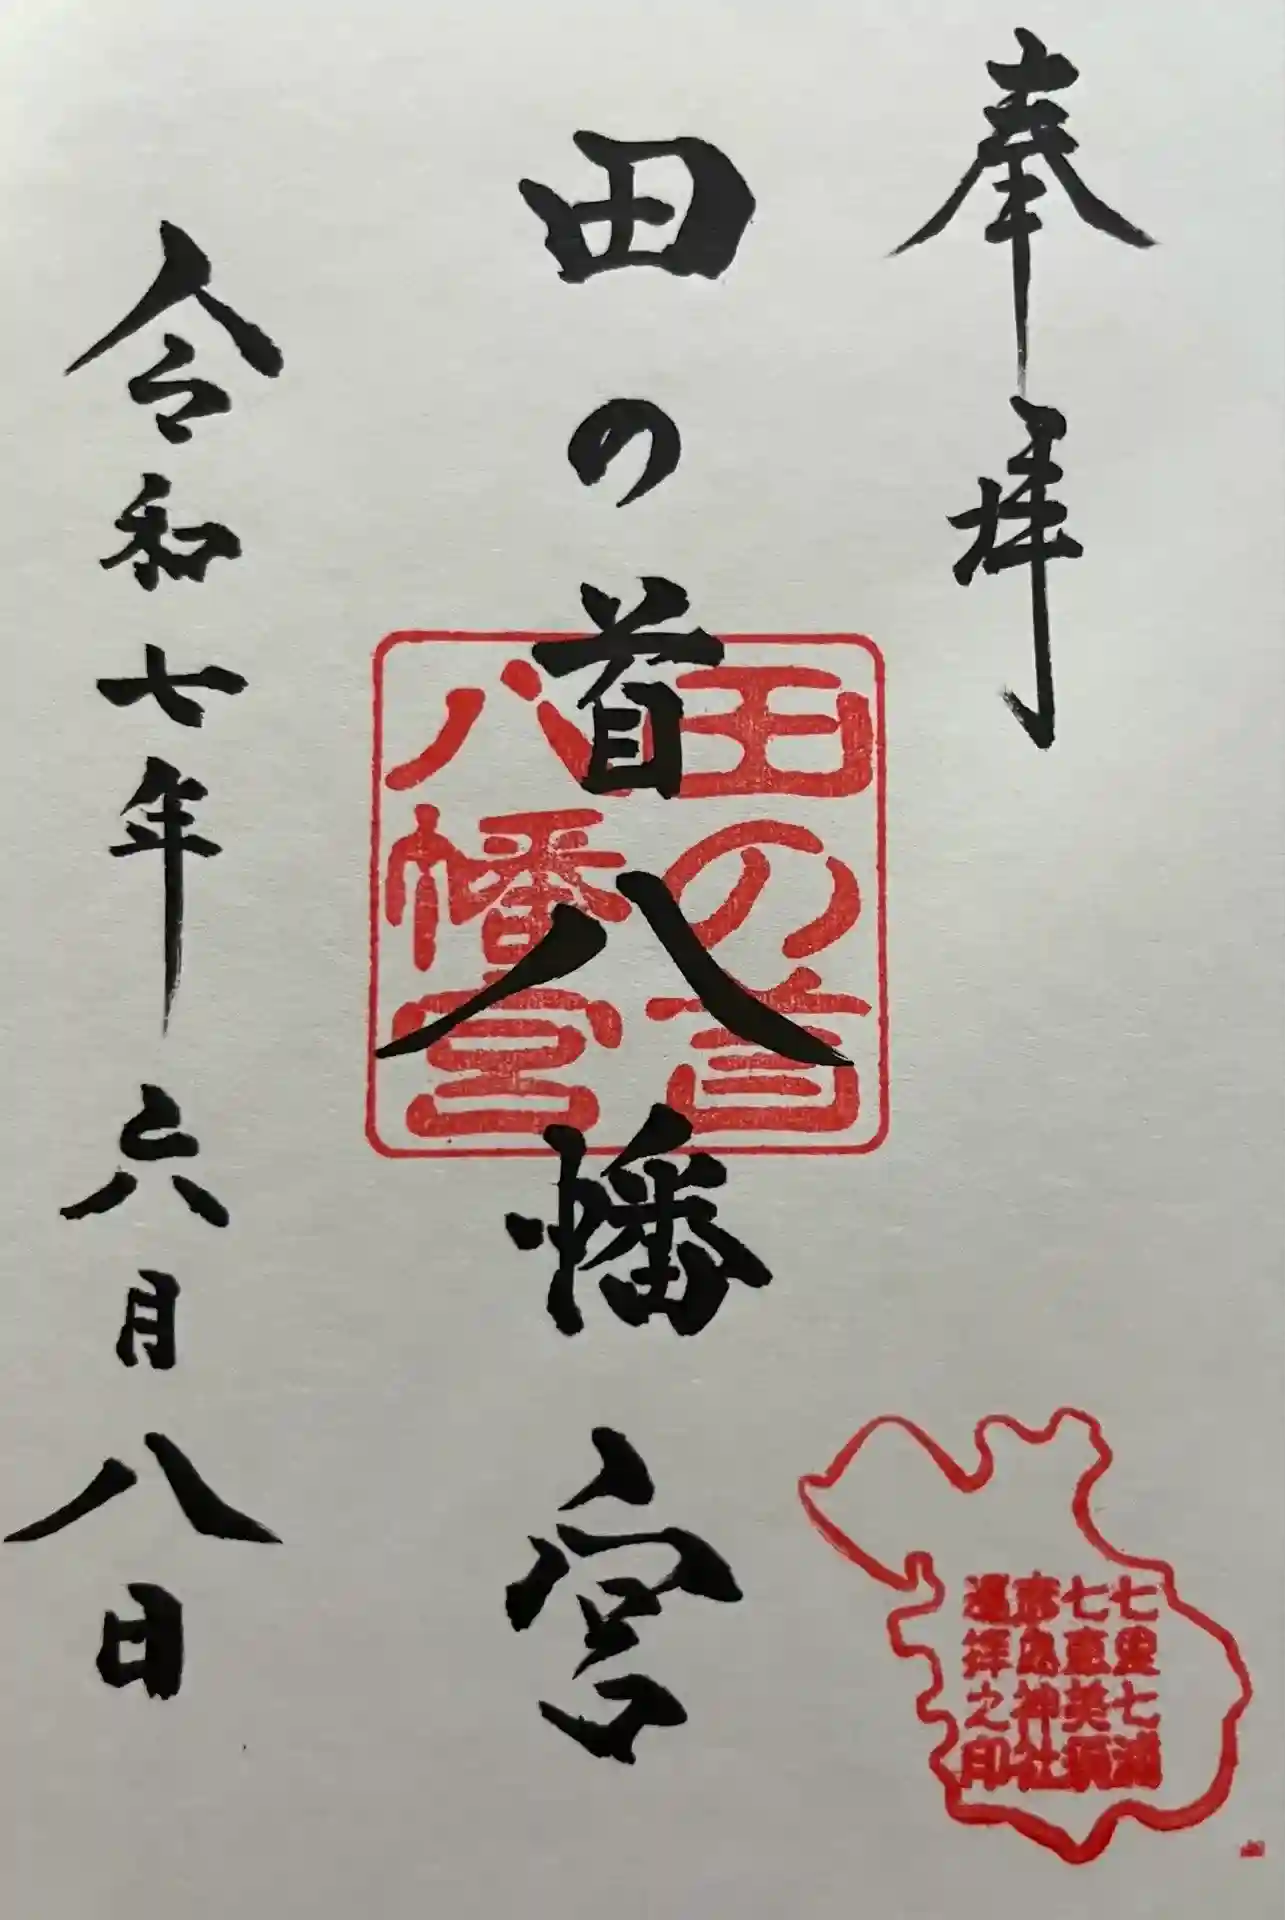 奉拝
田の首八幡宮
田の首
八幡宮
令和七年六月八日
七里七浦
七恵美須
彦島神社
遥拝之印